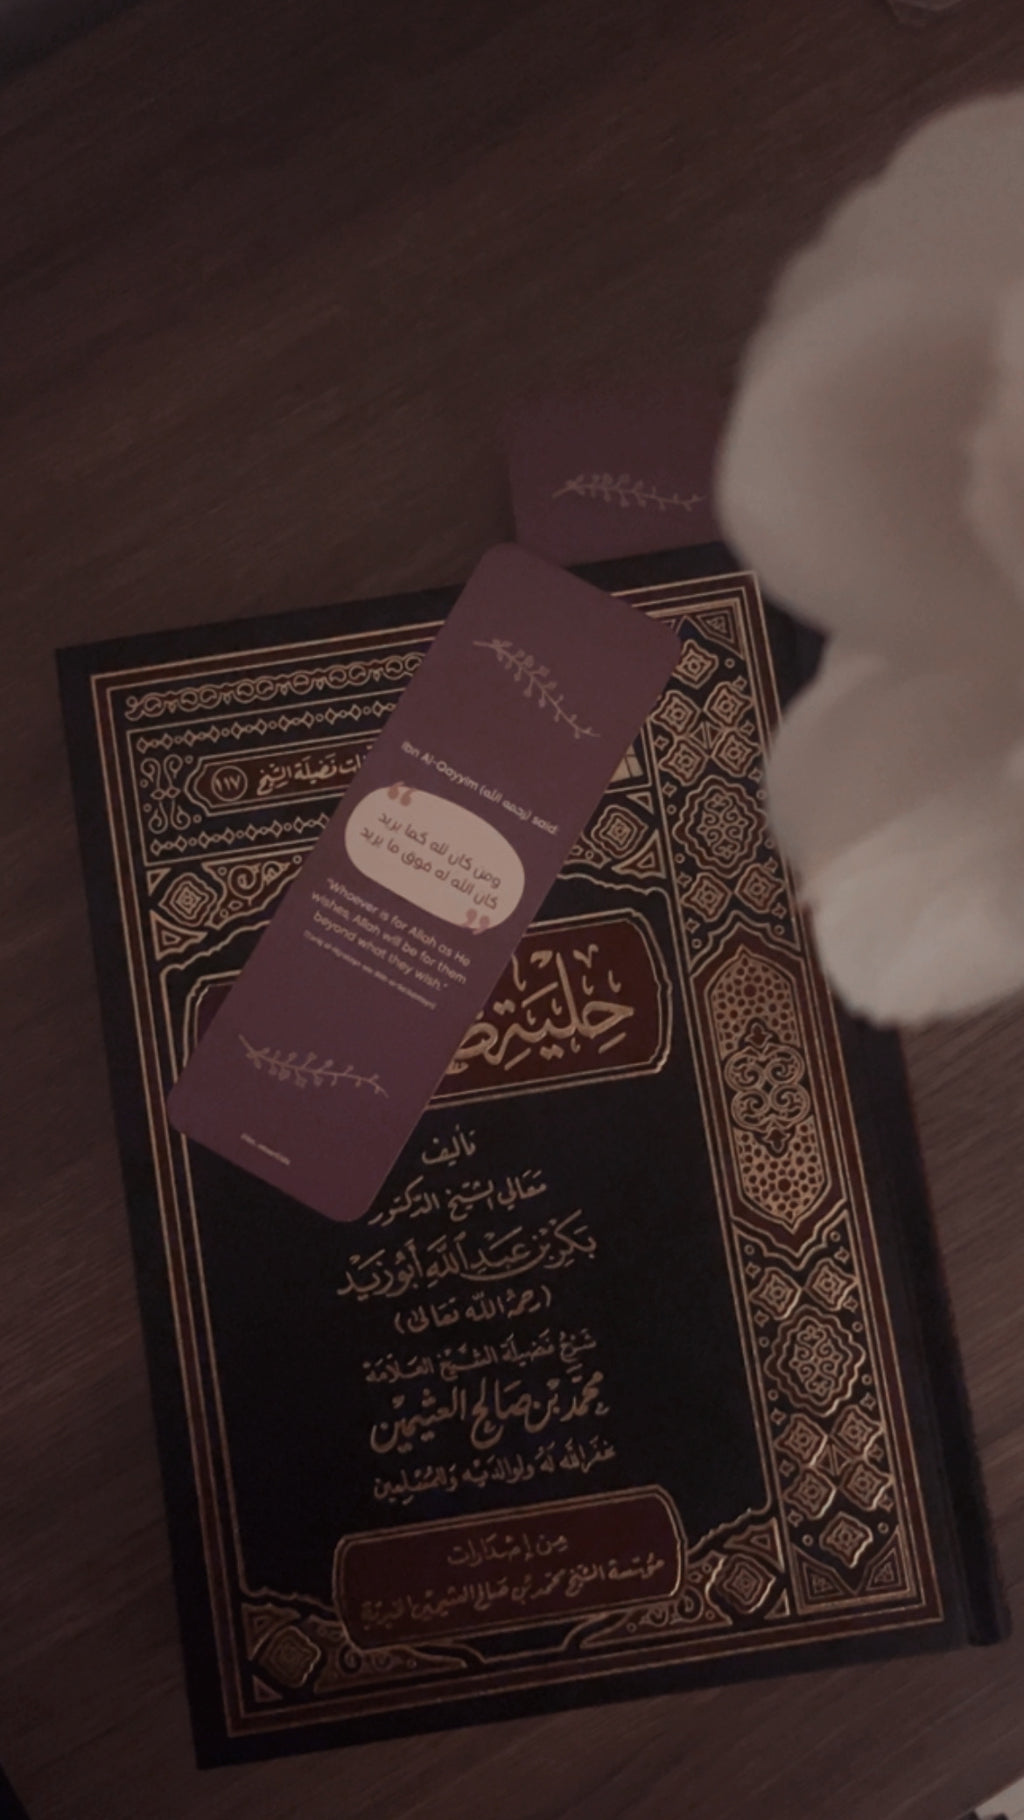 ات فَضِيلَة الشَّيْخ ١١٧
Ibn Al-Qayyim (رحمه الله) said:
ومن كان لله كما يريد
كان الله له فوق ما يريد
"Whoever is for Allah as He
wishes, Allah will be for them
beyond what they wish."
حِلْيَة
تأليف
مَعَالي الشَّيْخ الدَّكتور
بَكْر بْن عَبْدِ اللَّهِ أَبُو زَيْد
(رحمهُ اللَّه تَعَالَىٰ)
شَرْح فَضِيلَة الشَّيْخ العَلَّامَة
مُحَمَّد بْن صَالِح العُثَيْمِين
غَفَرَ اللَّه لَهُ ولوالدَيْه وَالمُسْلِمِين
مِن إصْدَارَات
مُؤسَّسَة الشَّيْخ مُحَمَّد بْن صَالِح العُثَيْمِين الخَيريَّة